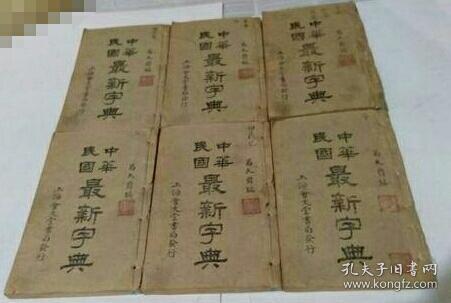 中華
民國
最新字典
上海會文堂書局發行
中華
民國
最新字典
上海會文堂書局發行
中華
民國
最新字典
上海會文堂書局發行
中華
民國
最新字典
上海會文堂書局發行
中華
民國
最新字典
上海會文堂書局發行
中華
民國
最新字典
上海會文堂書局發行
孔夫子旧书网
www.kongfz.com